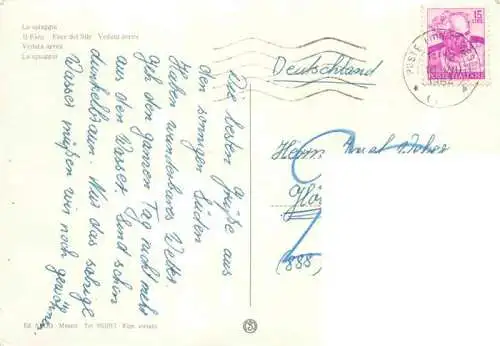 La spiaggia
Il Faro Foce del Sile Veduta aerea
Veduta aerea
La spiaggia
Die besten Grüße aus
dem sonnigen Süden
Haben wunderbares Wetter.
den ganzen Tag nicht mehr
aus dem Wasser. Sind schon
dunkelbraun. Nur das salzige
Wasser müßen wir noch gewöhnen.
Deutschland
15
POSTE ITALIANE
Herrn
(888)
Mestre Tel.